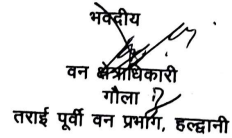 भवदीय
वन क्षेत्राधिकारी
गौला
तराई पूर्वी वन प्रभाग, हल्द्वानी